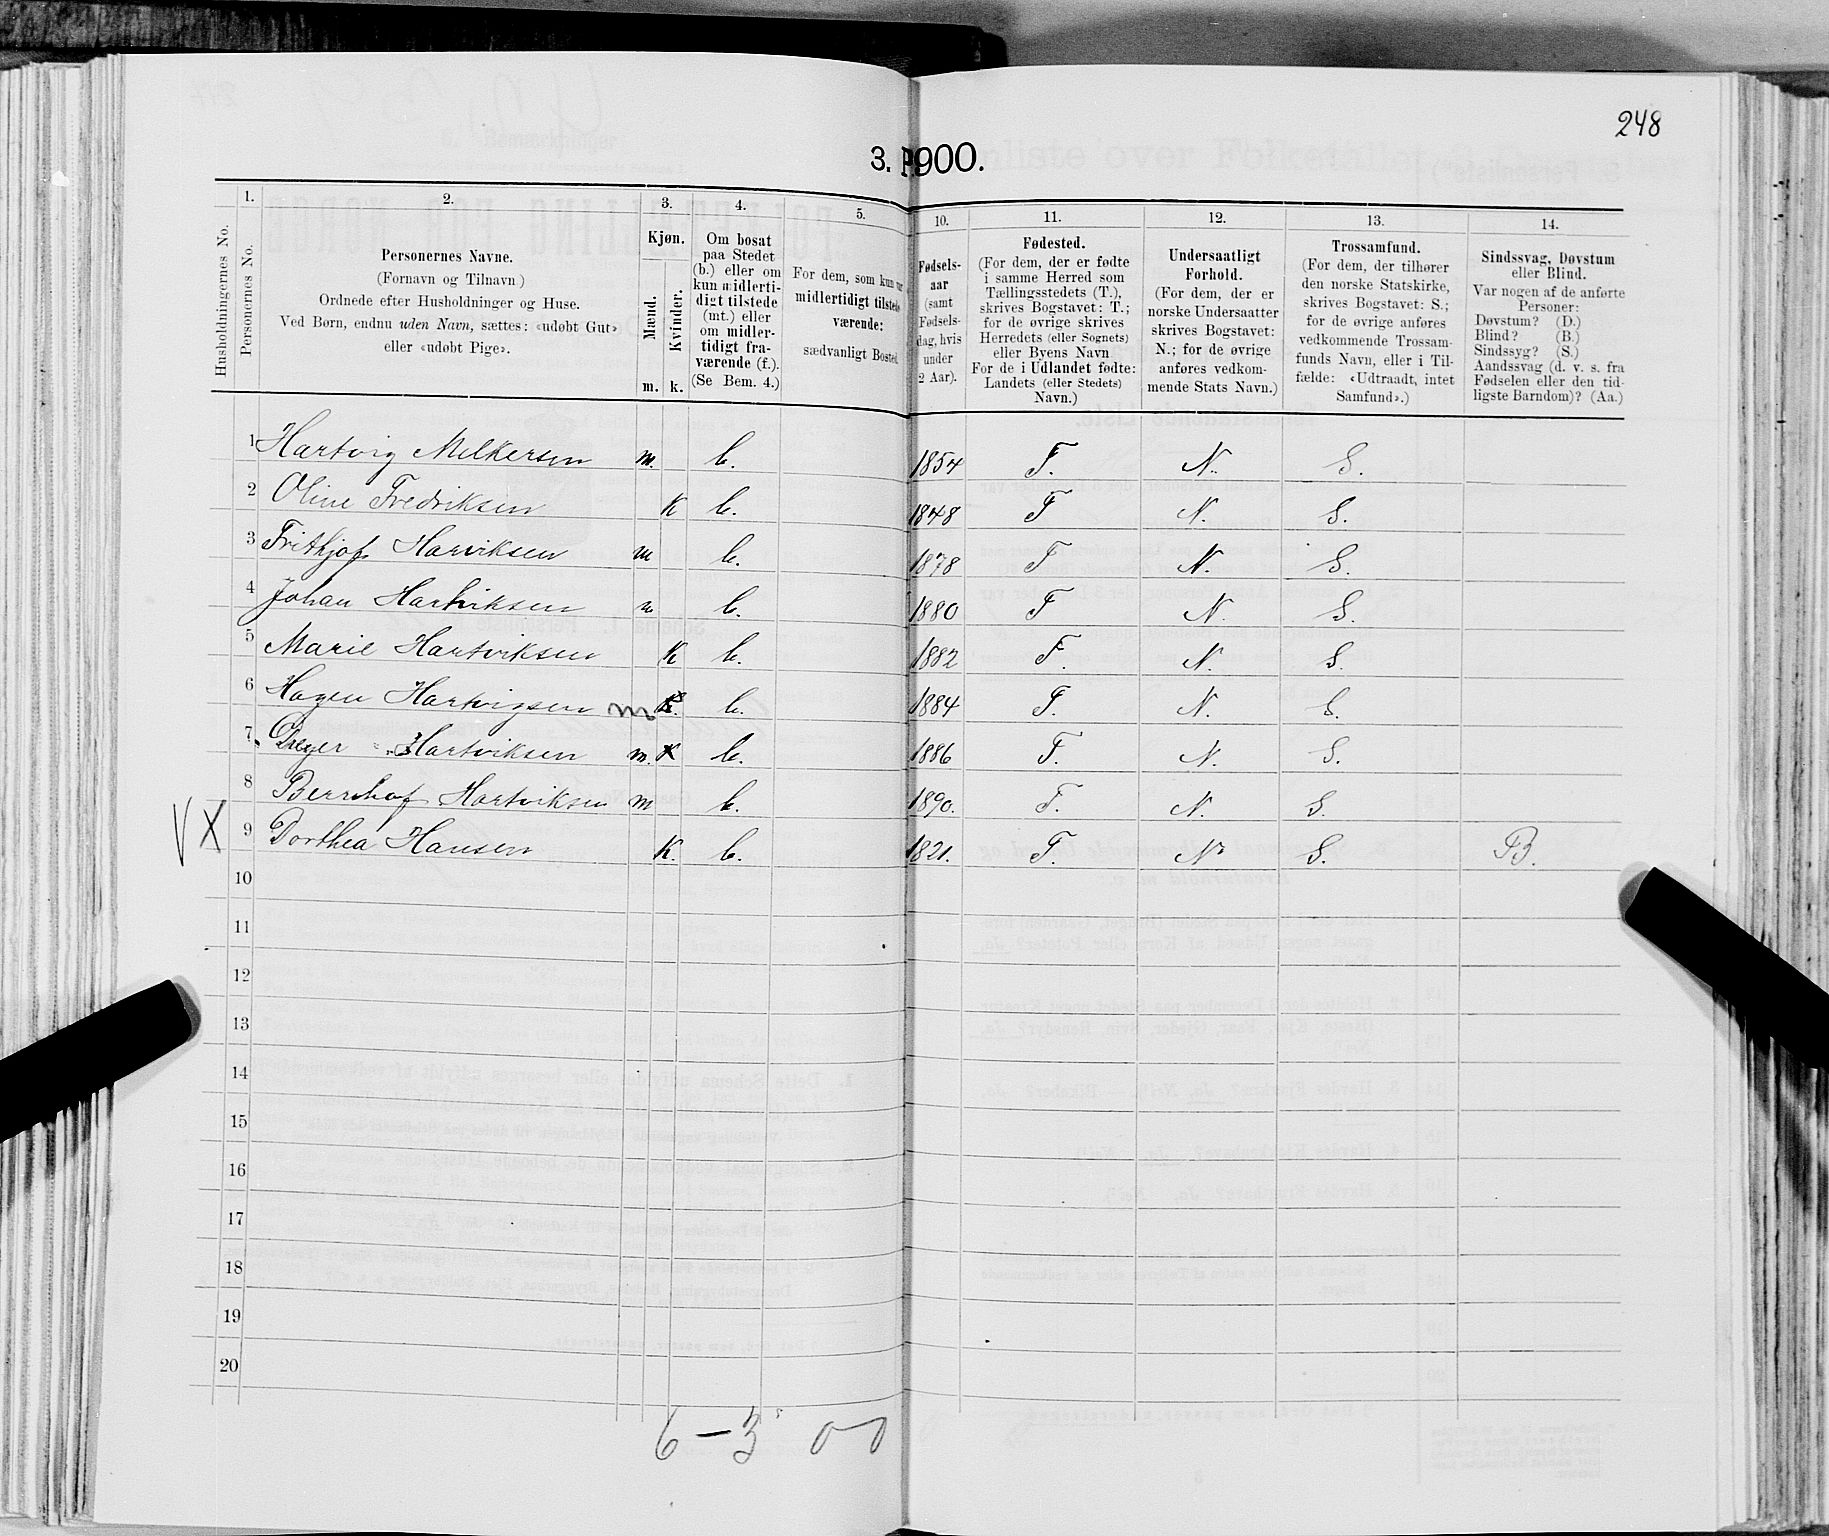 248
3. P 1900.
1. 2. 3. 4. 5. 10. 11. 12. 13. 14.
Husholdningernes No.
Personernes No.
Personernes Navne.
(Fornavn og Tilnavn)
Ordnede efter Husholdninger og Huse.
Ved Børn, endnu uden Navn, sættes: «udøbt Gut»
eller «udøbt Pige».
Kjøn.
Mænd.
Kvinder.
m. k.
Om bosat
paa Stedet
(b.) eller om
kun midlerti-
digt tilstede
(mt.) eller
om midler-
tidigt fra-
værende (f.).
(Se Bem. 4.)
For dem, som kun var
midlertidigt tilstede-
værende:
sædvanligt Bosted.
Fødsels-
aar
(samt
Fødsels-
dag, hvis
under
2 Aar).
Fødested.
(For dem, der er fødte
i samme Herred som
Tællingsstedets (T.),
skrives Bogstavet: T.;
for de øvrige skrives
Herredets (eller Sognets)
eller Byens Navn
For de i Udlandet fødte:
Landets (eller Stedets)
Navn.)
Undersaatligt
Forhold.
(For dem, der er
norske Undersaatter
skrives Bogstavet:
N.; for de øvrige
anføres vedkom-
mende Stats Navn.)
Trossamfund.
(For dem, der tilhører
den norske Statskirke,
skrives Bogstavet: S.;
for de øvrige anføres
vedkommende Trossam-
funds Navn, eller i Til-
fælde: «Udtraadt, intet
Samfund».)
Sindssvag, Døvstum
eller Blind.
Var nogen af de anførte
Personer:
Døvstum? (D.)
Blind? (B.)
Sindssyg? (S.)
Aandssvag (d. v. s. fra
Fødselen eller den tid-
ligste Barndom)? (Aa.)
1 Hartvig Melkersen m. b. 1854 T. N. S.
2 Oline Fredriksen K b. 1848 T N. S.
3 Frithjof Harviksen m b. 1878 T N. S.
4 Johan Hartviksen m b. 1880 T N. S.
5 Marie Hartviksen K b. 1882 T. N. S.
6 Hagen Hartvigsen m K. b. 1884 T. N. S.
7 Hartviksen m. K b. 1886 T. N. S.
8 Bernhof Hartviksen m b. 1890. T. N. S.
V X 9 Dorthea Hansen K. b. 1821. T. N. S. B.
10
11
12
13
14
15
16
17
18
19
20
6 – 3 0 0